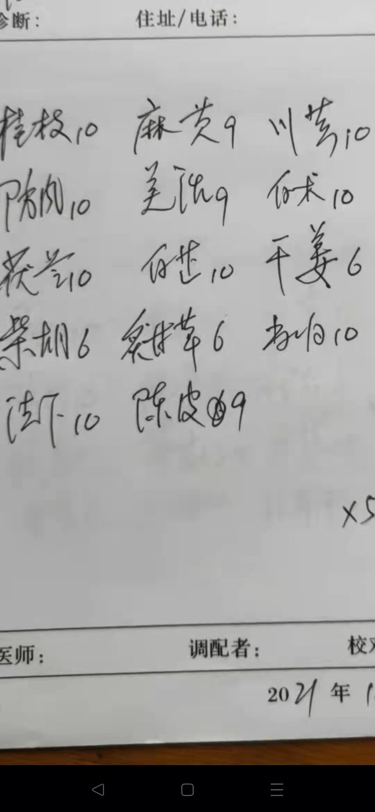 诊断: 住址/电话:
桂枝10 麻黄9 川芎10
防风10 羌活9 白术10
茯苓10 白芷10 干姜6
柴胡6 炙甘草6 当归10
法下10 陈皮9
×5
医师: 调配者: 校对
2021年1